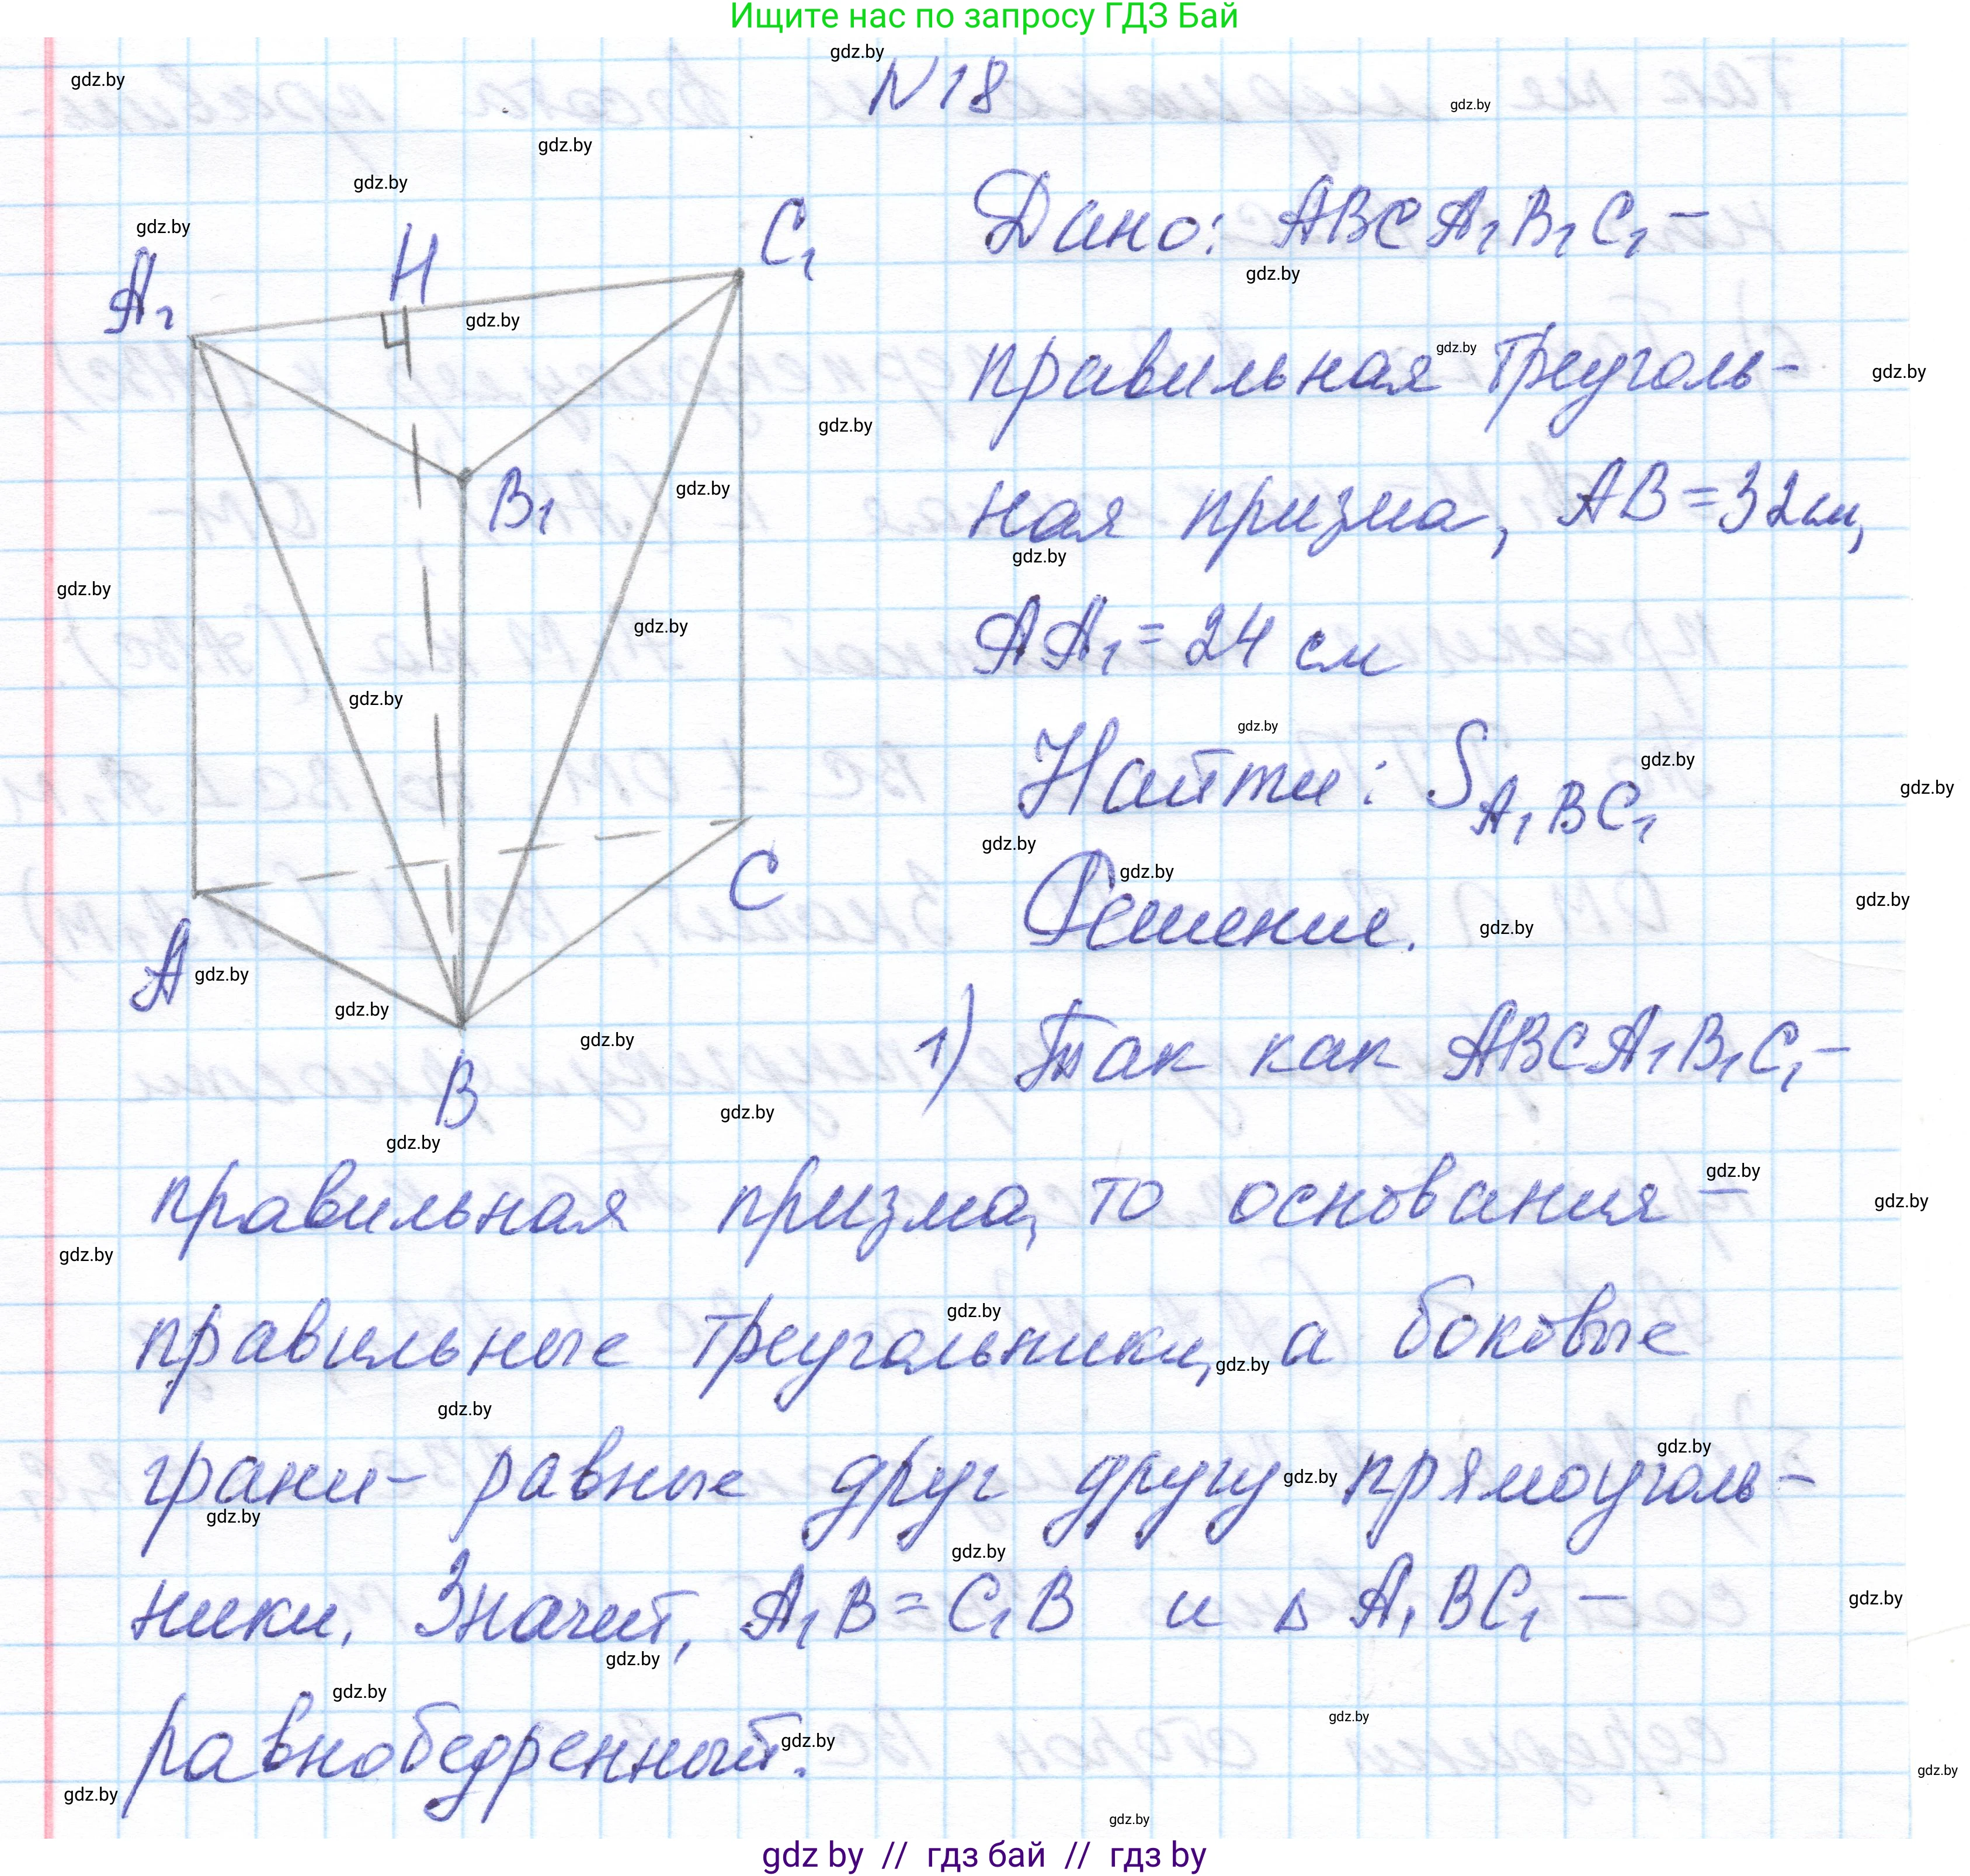 Ищите нас по запросу ГДЗ Бай
N18
Дано: ABCA₁B₁C₁ –
правильная треуголь-
ная призма, AB = 32 см,
AA₁ = 24 см
Найти: S A₁BC₁
Решение.
A₁
H
C₁
B₁
A
C
B
1) Так как ABCA₁B₁C₁ –
правильная призма, то основания –
правильные треугольники, а боковые
грани – равные друг другу прямоуголь-
ники. Значит, A₁B = C₁B и Δ A₁BC₁ –
равнобедренный.
gdz.by
gdz by // гдз бай // гдз by